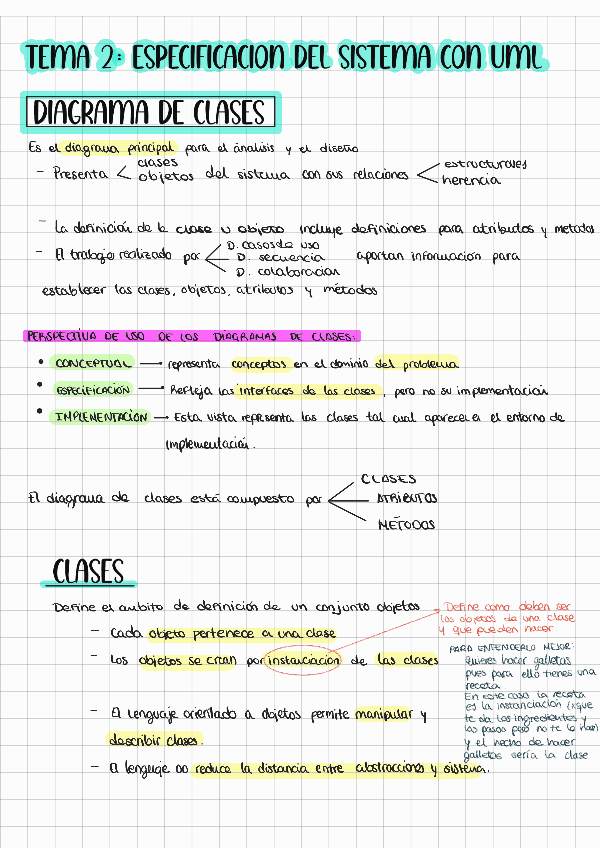 TEMA 2: ESPECIFICACION DEL SISTEMA CON UML
DIAGRAMA DE CLASES
Es el diagrama principal para el análisis y el diseño
- Presenta < clases objetos del sistema con sus relaciones < estructurales herencia
- La definición de la clase u objeto incluye definiciones para atributos y metodos
- El trabajo realizado por < D. casos de uso D. secuencia D. colaboracion aportan información para
establecer las clases, objetos, atributos y métodos
PERSPECTIVA DE USO DE LOS DIAGRAMAS DE CLASES:
• CONCEPTUAL → representa conceptos en el dominio del problema
• ESPECIFICACIÓN → Refleja las interfaces de las clases, pero no su implementación
• IMPLEMENTACIÓN → Esta vista representa las clases tal cual aparece en el entorno de
implementación.
El diagrama de clases está compuesto por < CLASES ATRIBUTOS METODOS
CLASES
Define el ambito de definición de un conjunto objetos
- Cada objeto pertenece a una clase
- Los objetos se crean por instanciación de las clases
Define como deben ser
los objetos de una clase
y que pueden hacer
PARA ENTENDERLO MEJOR:
Quieres hacer galletas
pues para ello tienes una
receta
En este caso la receta
es la instanciación (xque
te da los ingredientes y
los pasos pero no te lo hace)
y el hecho de hacer
galletas sería la clase
- El lenguaje orientado a objetos permite manipular y
describir clases.
- El lenguaje oo reduce la distancia entre abstracciones y sistema.